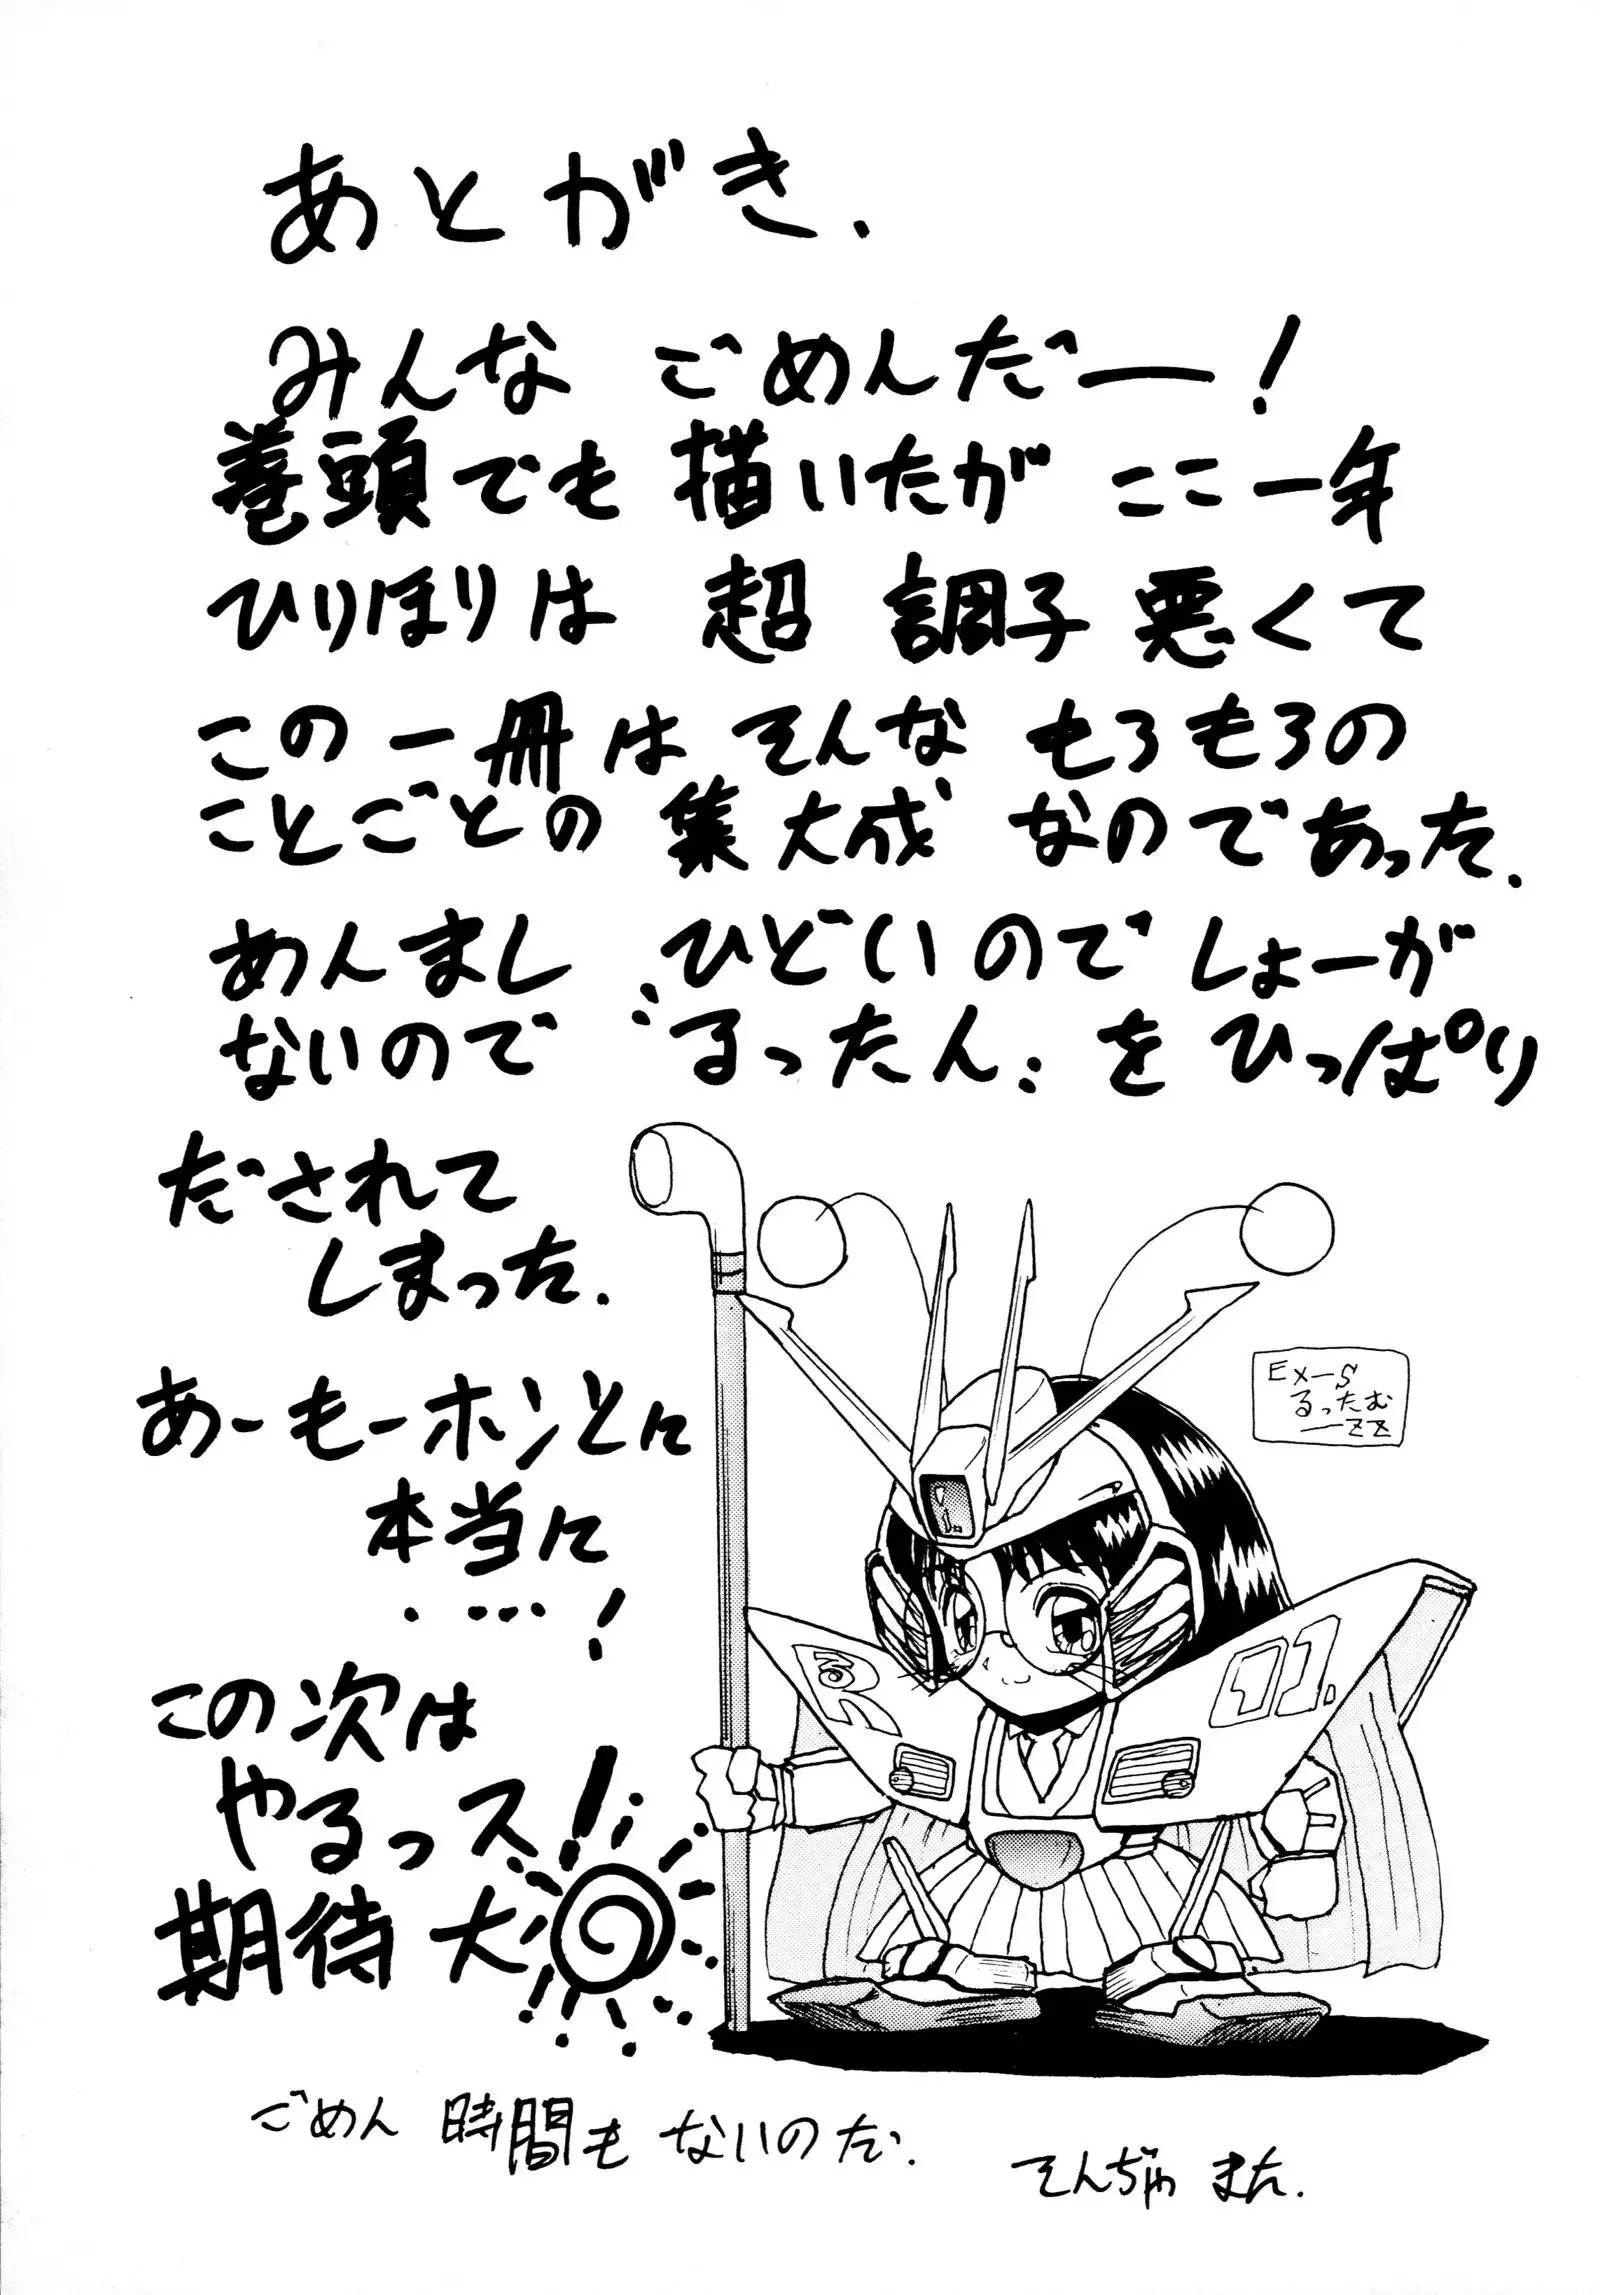 あとがき.
みんな ごめんだー!
巻頭でも 描いたが ここ一年
ひりほりは 超 調子悪くて
この一冊は そんな もろもろの
ことごとの 集大成 なのであった.
めんまし ひどいので しょーが
ないので 〝るったん〟を ひっぱり
だされて
しまった.
あーもーホンとに
本当に
・…!
この次は
やるっス!
期待大
EX-S
るったむ
ーZZ
R
01.
ごめん 時間も ないのだ.
そんぢゃ また.